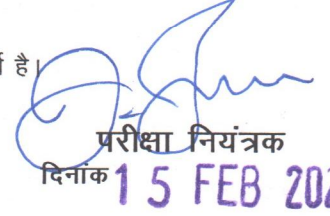 है।
परीक्षा नियंत्रक
दिनांक 15 FEB 202